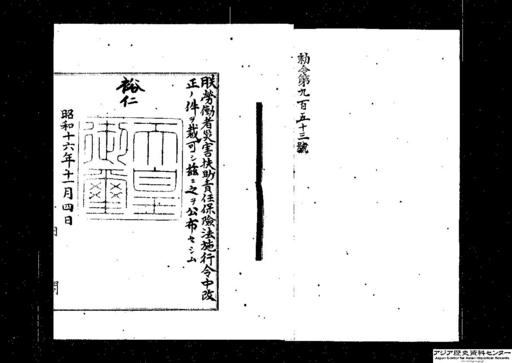 勅令第九百五十三號
朕勞働者災害扶助責任保險法施行令中改
正ノ件ヲ裁可シ茲ニ之ヲ公布セシム
裕仁
天皇
御璽
昭和十六年十一月四日
アジア歴史資料センター
Japan Center for Asian Historical Records